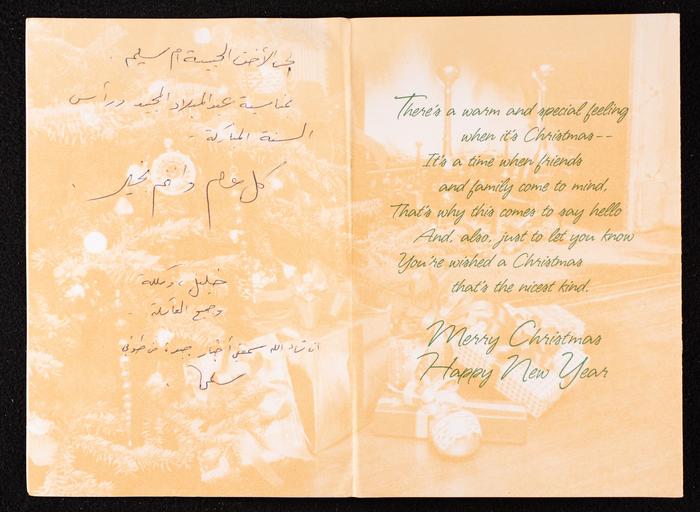 الأخت الحبيبة أم سليم
بمناسبة عيد الميلاد المجيد ورأس
السنة المباركة
كل عام وانتم بخير
خليل،
وجميع العائلة
ان شاء الله أخبار جيدة عن
There's a warm and special feeling
when it's Christmas--
It's a time when friends
and family come to mind,
That's why this comes to say hello
And, also, just to let you know
You're wished a Christmas
that's the nicest kind.
Merry Christmas
Happy New Year